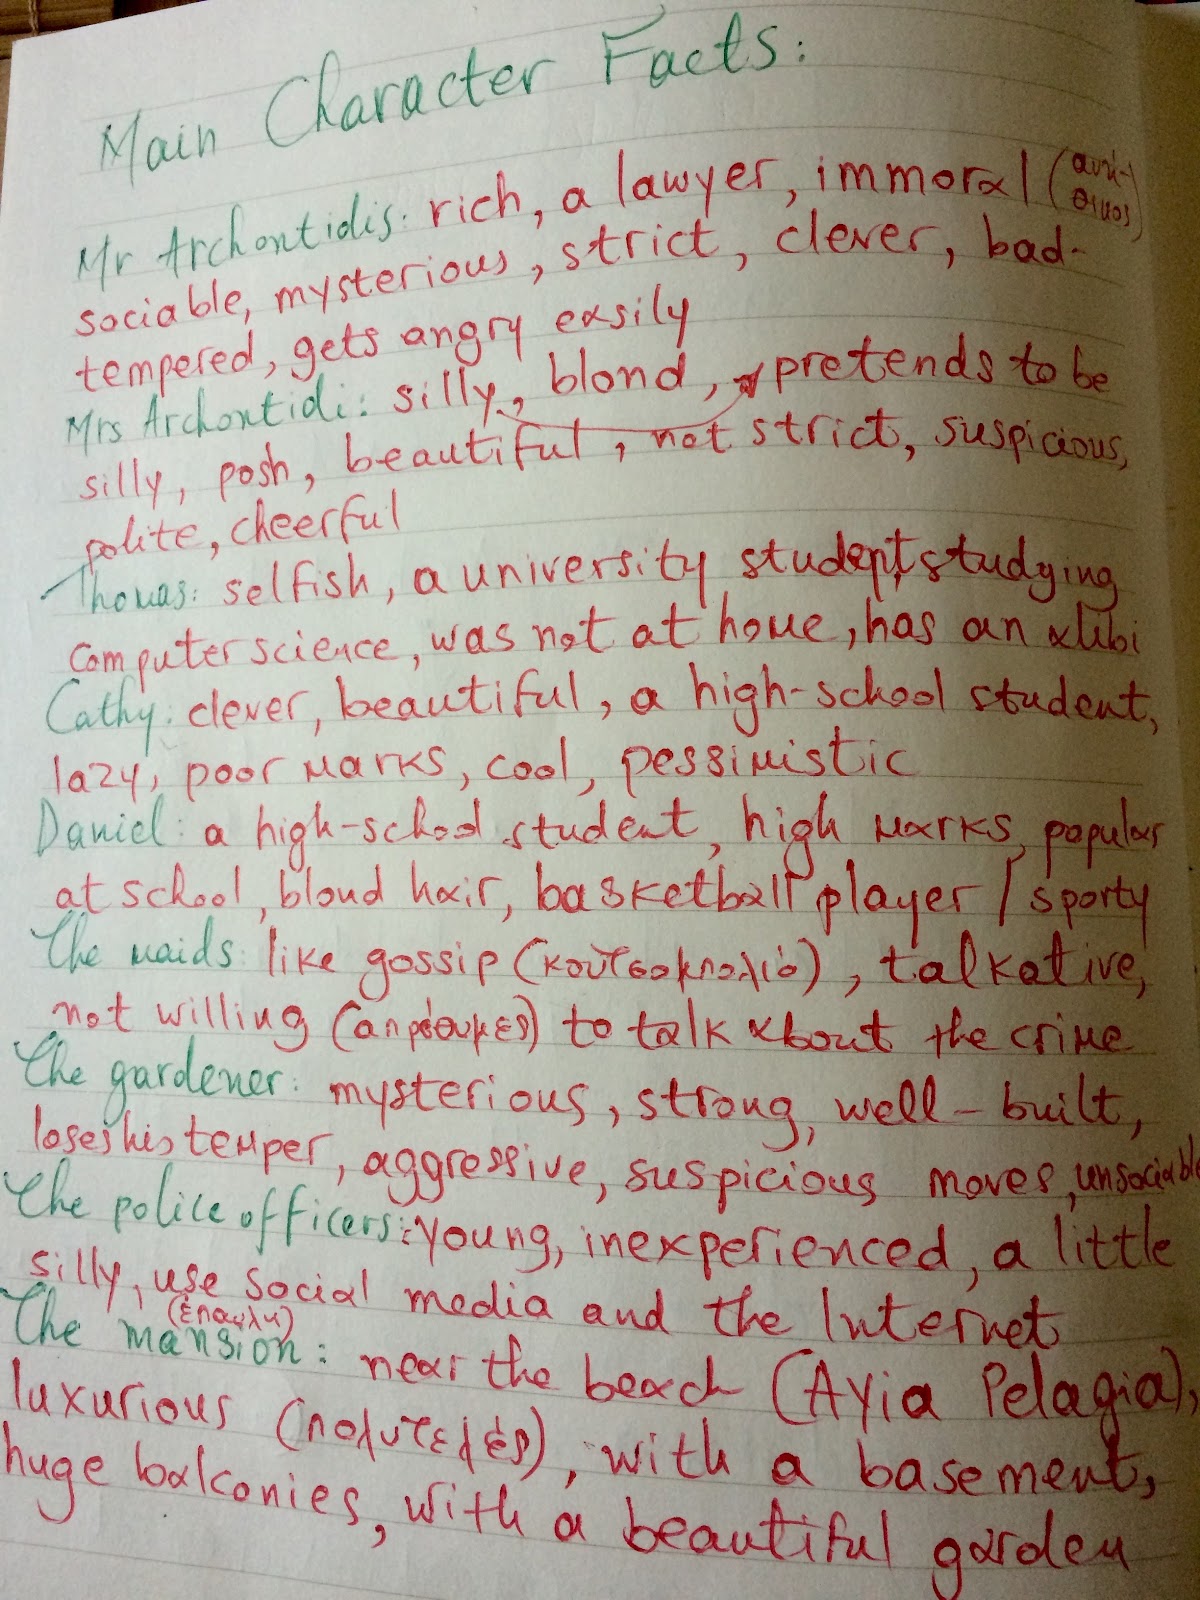 Main Character Facts:
Mr Archontidis: rich, a lawyer, immoral (αντι-
θιμος)
sociable, mysterious, strict, clever, bad-
tempered, gets angry easily
Mrs Archontidi: silly, blond, pretends to be
silly, posh, beautiful, not strict, suspicious,
polite, cheerful
Thomas: selfish, a university student, studying
computer science, was not at home, has an alibi
Cathy: clever, beautiful, a high-school student,
lazy, poor marks, cool, pessimistic
Daniel: a high-school student, high marks, popular
at school, blond hair, basketball player / sporty
The maids: like gossip (κουτσομπολιό), talkative,
not willing (απρόθυμες) to talk about the crime
The gardener: mysterious, strong, well-built,
loses his temper, aggressive, suspicious moves, unsociable
The police officers: young, inexperienced, a little
silly, use social media and the Internet
(έπαυλη)
The mansion: near the beach (Ayia Pelagia),
luxurious (πολυτελές), with a basement,
huge balconies, with a beautiful garden